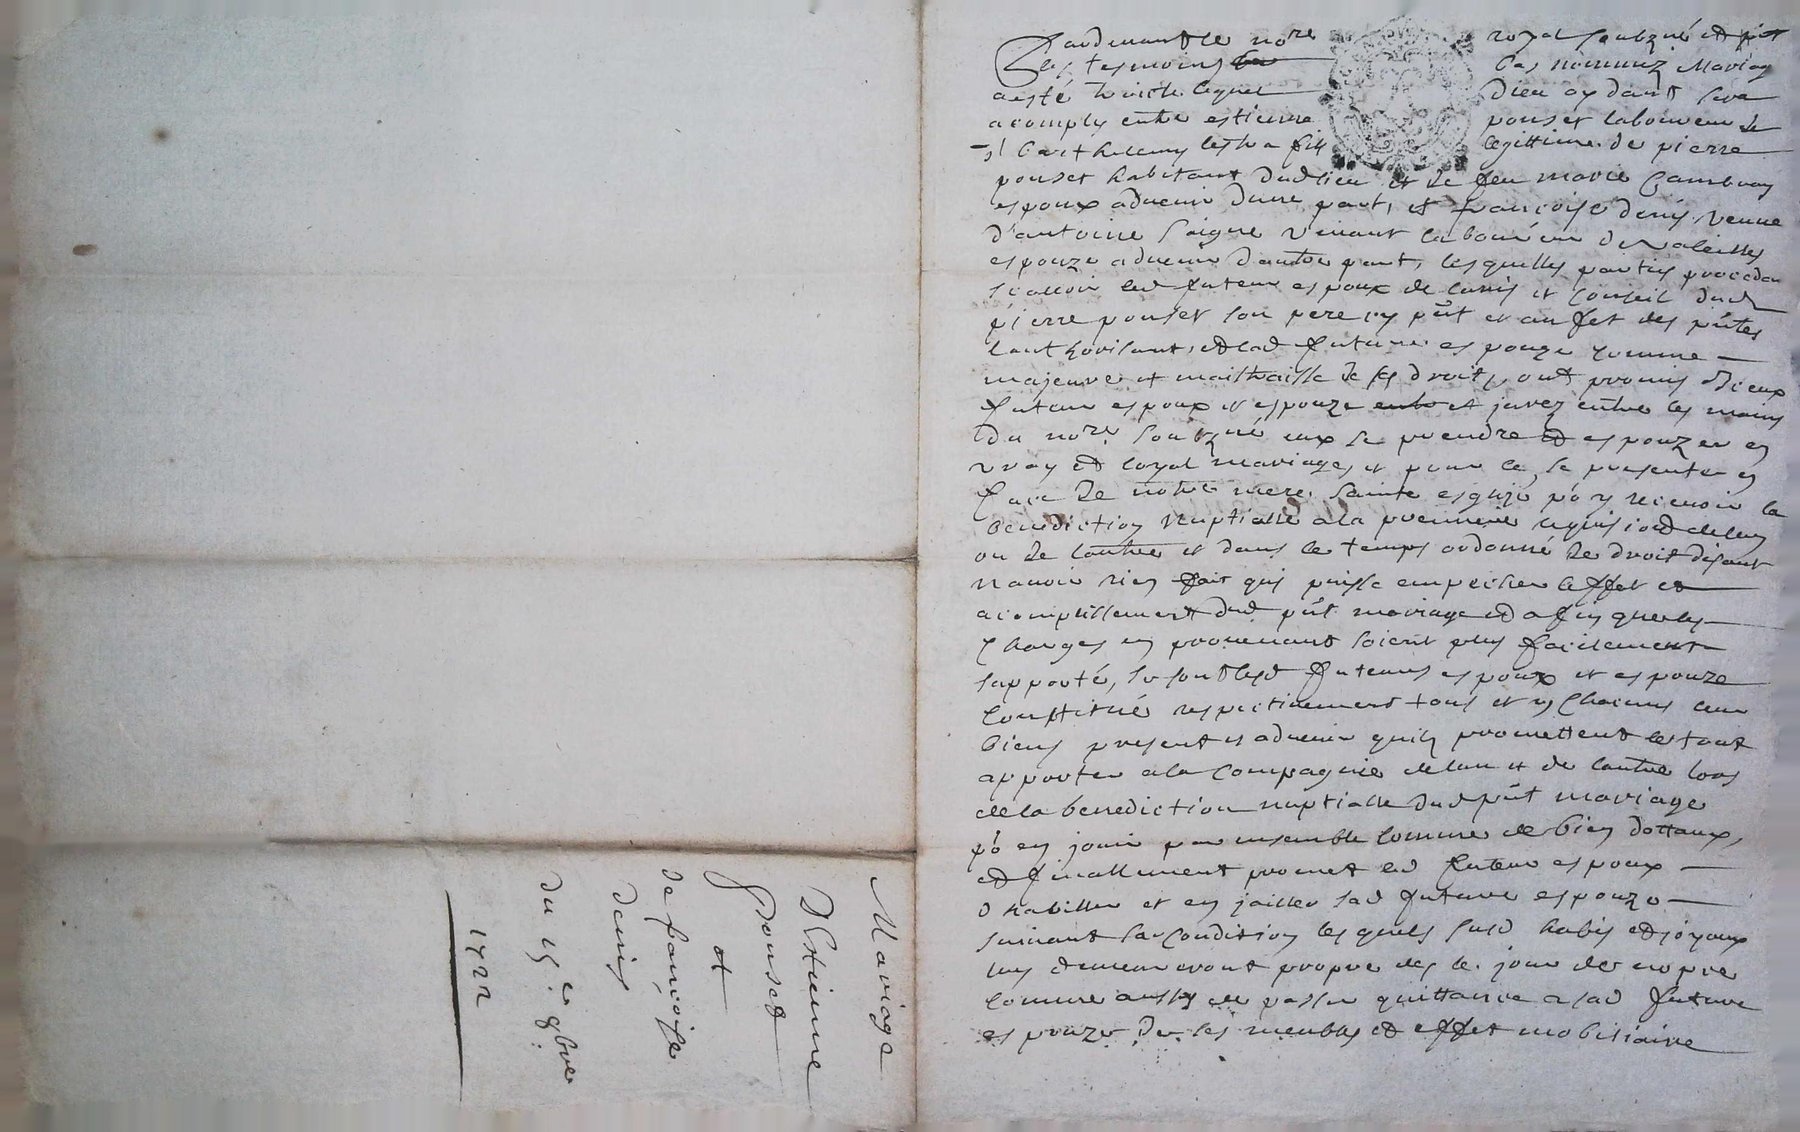 Pardevant le no.re royal soubzné et p̃nt
les tesmoins bas nommez Mariag
a esté traicté lequel Dieu aydant sera
acomply entre estienne pouset laboureur de
st Barthelemy lestra fils legittime de pierre
pouset habitant dud lieu et de feu marie Cambray
espoux advenir dune part, et françoise denis veuve
d'antoine vivant laboureur de valeilles
espouze advenir dautre part, lesquelles parties procedan
scavoir led futeur espoux de lavis et conseil dud
pierre pouset son pere icy p̃nt et au fet des p̃ntes
lauthorisant, et lad future espouze comme
majeure et maitraisse de ses droits, ont promis iceux
futeur espoux et espouze et jurez entre les mains
du no.re soubzné eux se prendre et espouzer en
vray et loyal mariage, et pour ce, se presenter en
face de notre mere sainte esglize po y recevoir la
benediction nuptialle a la premiere de lun
ou de lautre et dans le temps ordonné de droit disant
navoir rien fait qui puisse empecher leffet et
acomplissement dud p̃nt mariage et afin que les
charges en provenant soient plus facilement
supporté, se sont lesd futeurs espoux et espouze
constitué respectivement tous et un chacuns leur
biens present et advenir quilz promettent le tout
apporter a la compagnie de lun et de lautre lors
de la benediction nuptialle dud p̃nt mariage
po en jouir par ensemble comme de bien dottaux,
et finallement promet led futeur espoux
dhabiller et enjailler sad future espouze
suivant sa condition lesquels susd habis et joyaux
luy demeureront propre des le jour de nopce
comme aussy de passer quittance a sad future
espouze de ses meubles et effet mobiliaire
Mariage
D'Estienne
pouset
et
de françoise
denis
du 15.e 9bre
1722